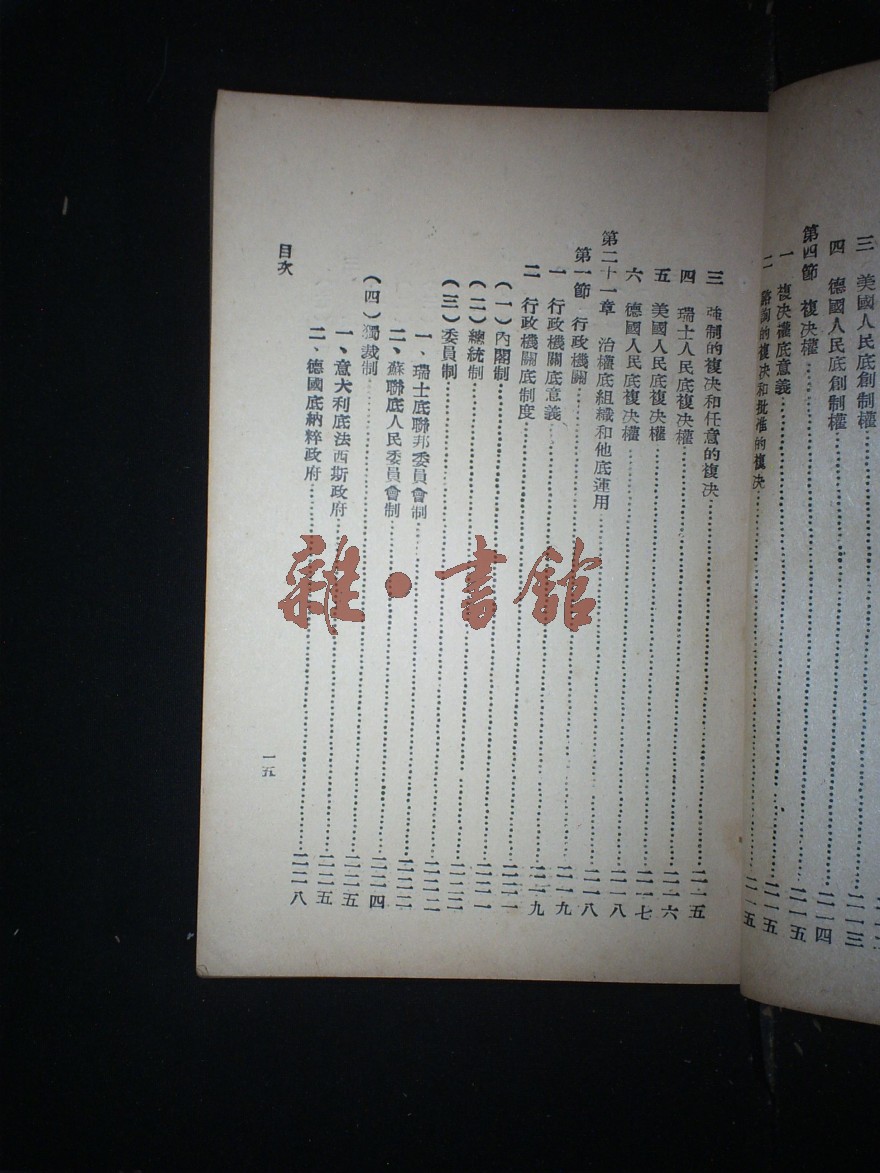 三 美國人民底創制權……二一三
四 德國人民底創制權……二一四
第四節 複决權……二一五
一 複决權底意義……二一五
二 諮詢的複决和批准的複决……二一五
三 強制的複决和任意的複决……二一五
四 瑞士人民底複决權……二一六
五 美國人民底複决權……二一七
六 德國人民底複决權……二一八
第二十一章 治權底組織和他底運用……二一八
第一節 行政機關……二一九
一 行政機關底意義……二一九
二 行政機關底制度……
(一)內閣制……二二一
(二)總統制……二二一
(三)委員制……二二二
一、瑞士底聯邦委員會制……二二二
二、蘇聯底人民委員會制……二二三
(四)獨裁制……二二四
一、意大利底法西斯政府……二二五
二、德國底納粹政府……二二八
目次
一五
雜·書館